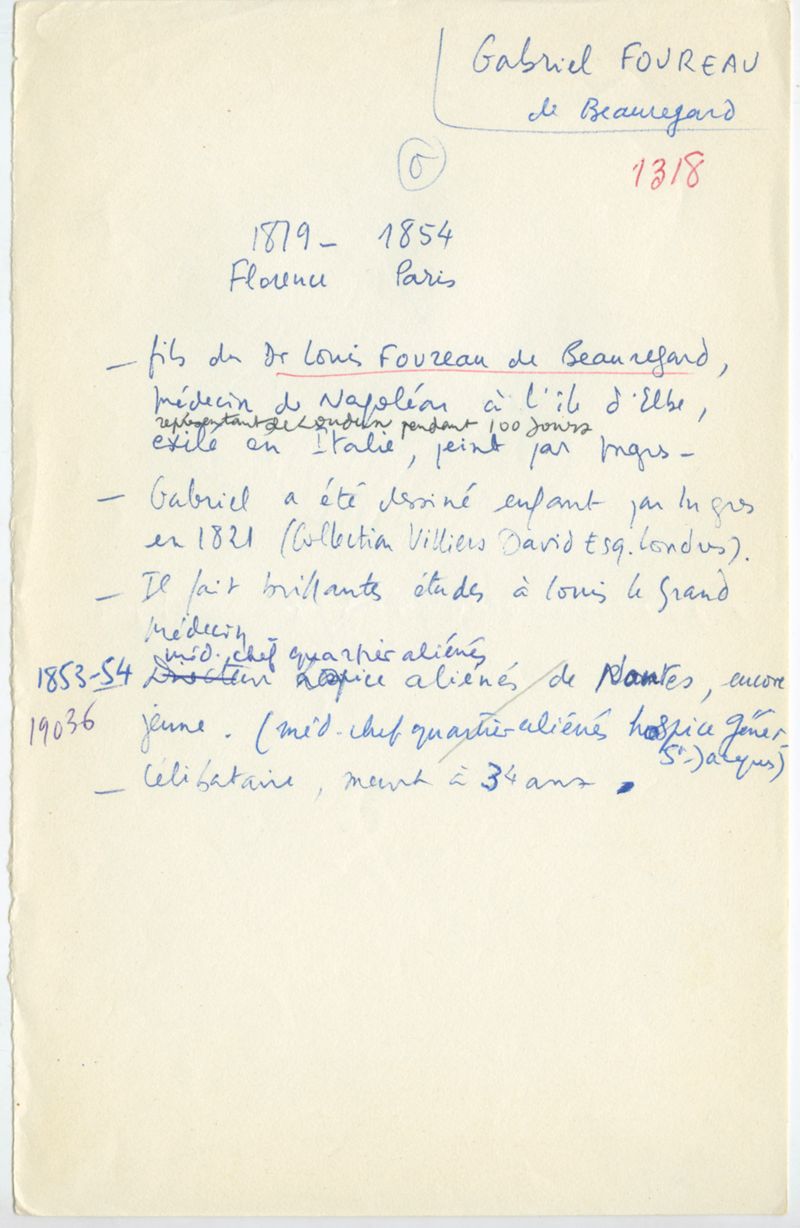 Gabriel FOUREAU
de Beauregard
1318
1819 - 1854
Florence Paris
— fils du Dr Louis Foureau de Beauregard,
médecin de Napoléon à l'île d'Elbe,
représentant de Loudun pendant 100 Jours
exilé en Italie, peint par Ingres -
— Gabriel a été dessiné enfant par Ingres
en 1821 (Collection Villiers David Esq. Londres).
— Il fait brillantes études à Louis le Grand
Médecin
méd. chef quartier aliénés
1853-54 Directeur hospice aliénés de Nantes, encore
19036 jeune. (méd. chef quartier aliénés hospice génér
St-Jacques)
— Célibataire, meurt à 34 ans.